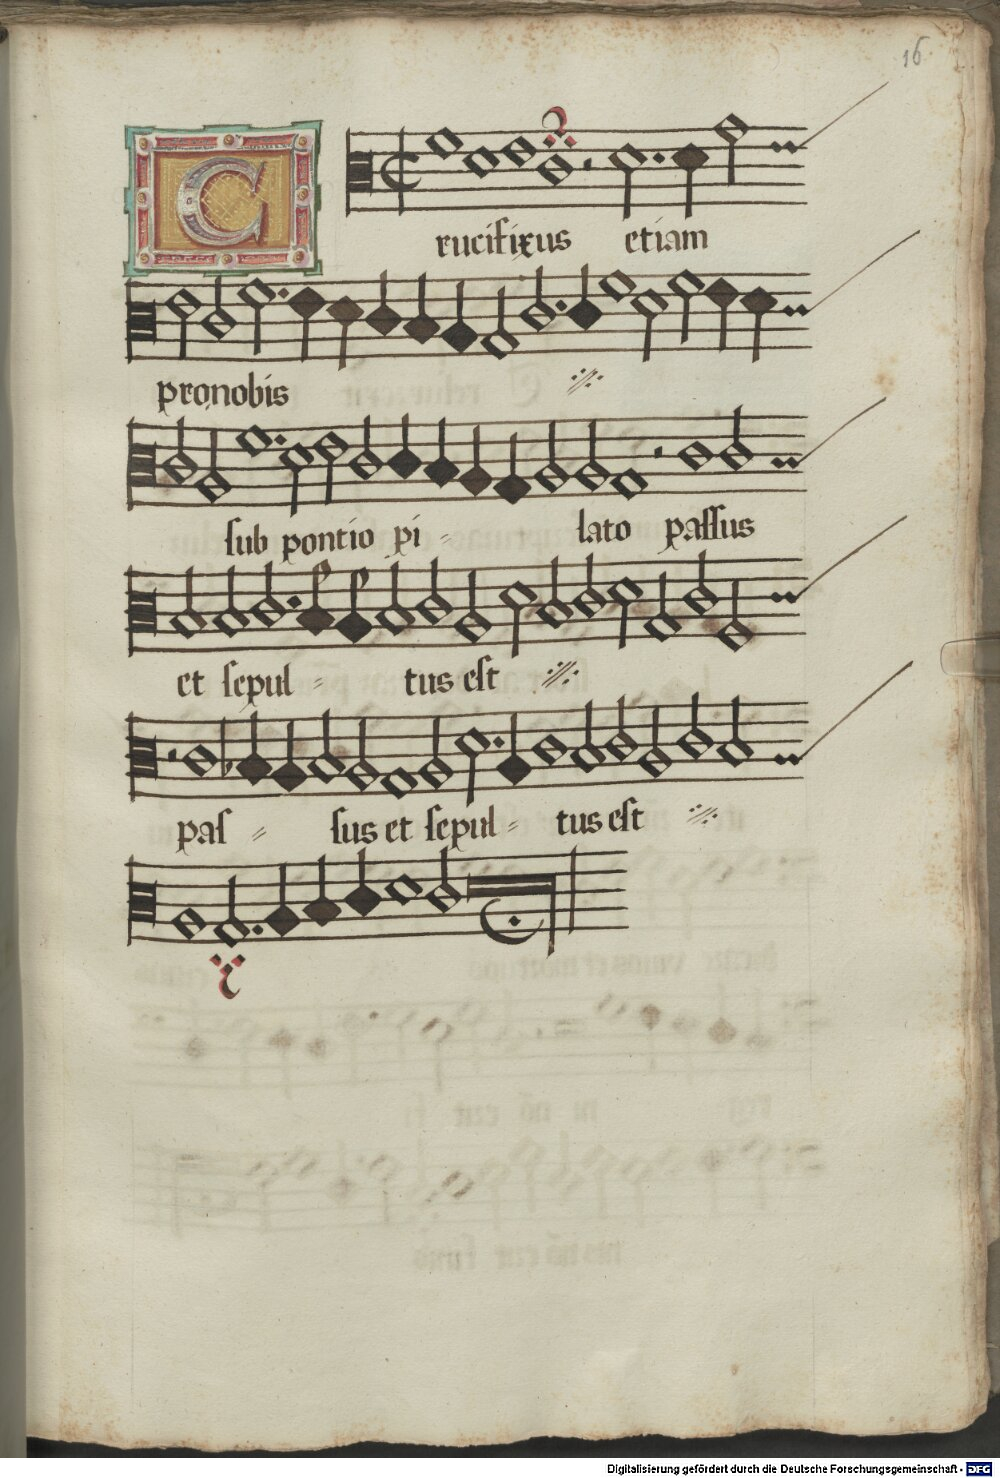 16
Crucifixus etiam
pro nobis
sub pontio pi - lato passus
et sepul - tus est
pas - sus et sepul - tus est
Digitalisierung gefördert durch die Deutsche Forschungsgemeinschaft - DFG